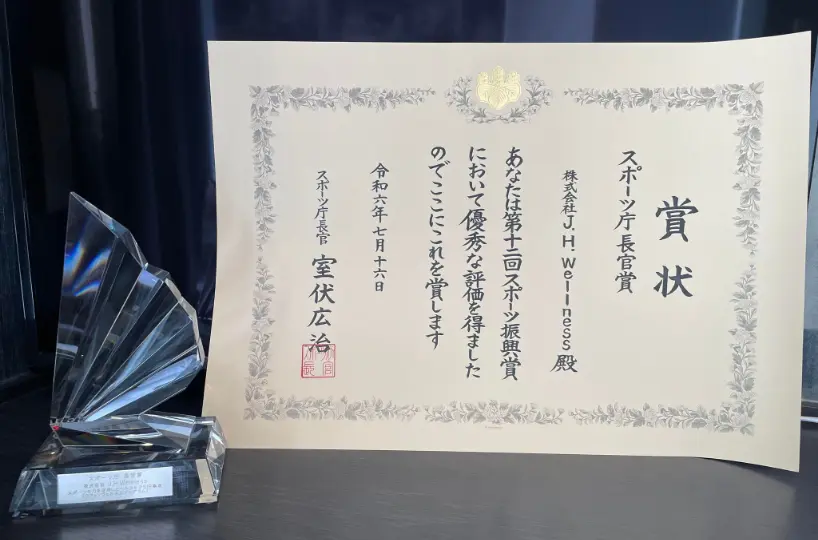 賞状
スポーツ庁長官賞
株式会社J.H.Wellness 殿
あなたは第十二回スポーツ振興賞
において優秀な評価を得ました
のでここにこれを賞します
令和六年七月十六日
スポーツ庁長官 室伏広治
スポーツ庁 長官賞